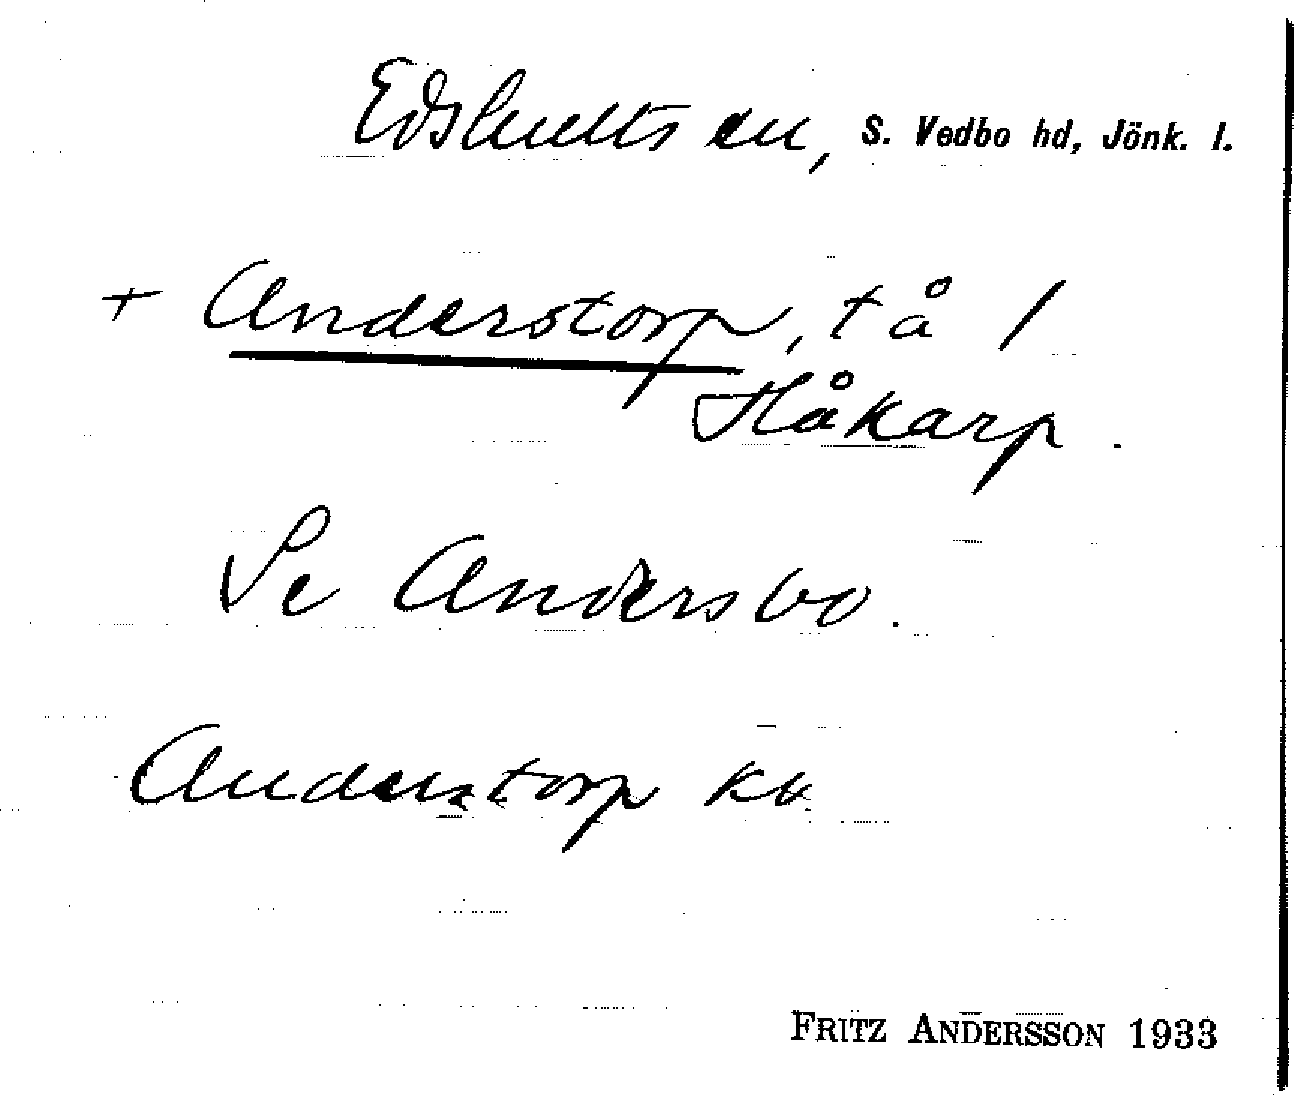 Edshults sn, S. Vedbo hd, Jönk. l.
+ Anderstorp, tå /
Håkarp.
Se Andersbo.
Anderstorp kk
FRITZ ANDERSSON 1933